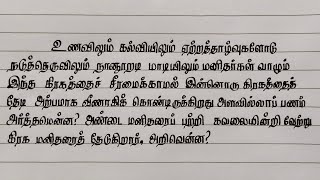 உணவிலும் கல்வியிலும் ஏற்றத்தாழ்வுகளோடு
நடுத்தெருவிலும் நானூறடி மாடியிலும் மனிதர்கள் வாழும்
இந்த கிரகத்தைச் சீரமைக்காமல் இன்னொரு கிரகத்தைத்
தேடி அற்பமாக வீணாகிக் கொண்டிருக்கிறது அளவில்லாப் பணம்
அர்த்தமென்ன? அண்டை மனிதரைப் பற்றி கவலையின்றி வேற்று
கிரக மனிதரைத் தேடுகிறார், அறிவென்ன?